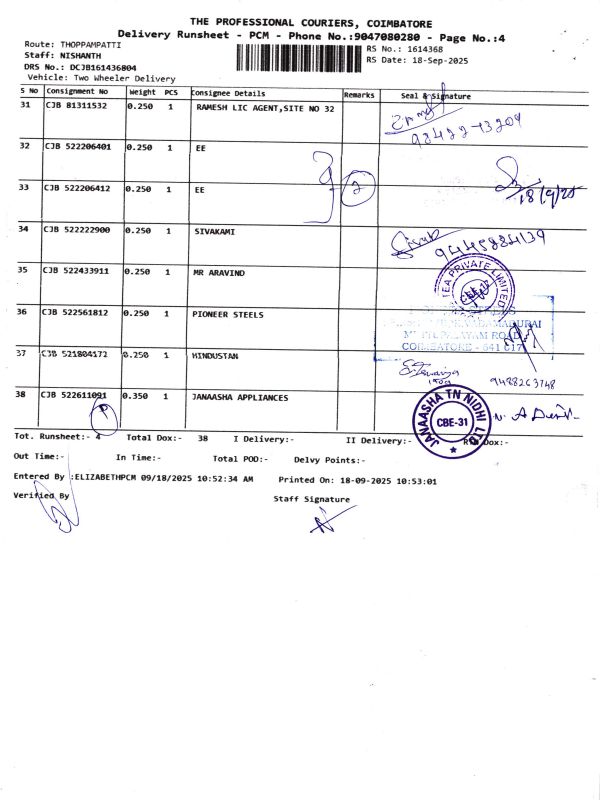 THE PROFESSIONAL COURIERS, COIMBATORE
Delivery Runsheet - PCM - Phone No.:9047080280 - Page No.:4
Route: THOPPAMPATTI
RS No.: 1614368
Staff: NISHANTH
RS Date: 18-Sep-2025
DRS No.: DCJB161436804
Vehicle: Two Wheeler Delivery
S No Consignment No Weight PCS Consignee Details Remarks Seal & Signature
31 CJB 81311532 0.250 1 RAMESH LIC AGENT,SITE NO 32
93422-13209
32 CJB 522206401 0.250 1 EE
33 CJB 522206412 0.250 1 EE 2
18/9/25
34 CJB 522222900 0.250 1 SIVAKAMI
9445884139
35 CJB 522433911 0.250 1 MR ARAVIND
TEA PRIVATE LIMITED
36 CJB 522561812 0.250 1 PIONEER STEELS
ROAD
COIMBATORE - 641 017
37 CJB 521804172 0.250 1 HINDUSTAN
9488263748
38 CJB 522611091 0.350 1 JANAASHA APPLIANCES
P
JANAASHA TN NIDHI LTD
CBE-31
Tot. Runsheet:- 4 Total Dox:- 38 I Delivery:- II Delivery:- Dox:-
Out Time:- In Time:- Total POD:- Delvy Points:-
Entered By :ELIZABETHPCM 09/18/2025 10:52:34 AM Printed On: 18-09-2025 10:53:01
Verified By Staff Signature